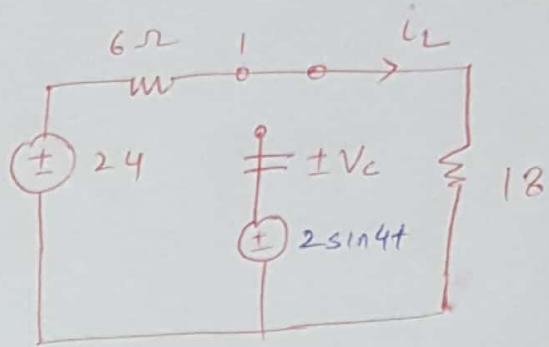 6Ω 1 iL
± 24
± Vc
18
± 2sin4t